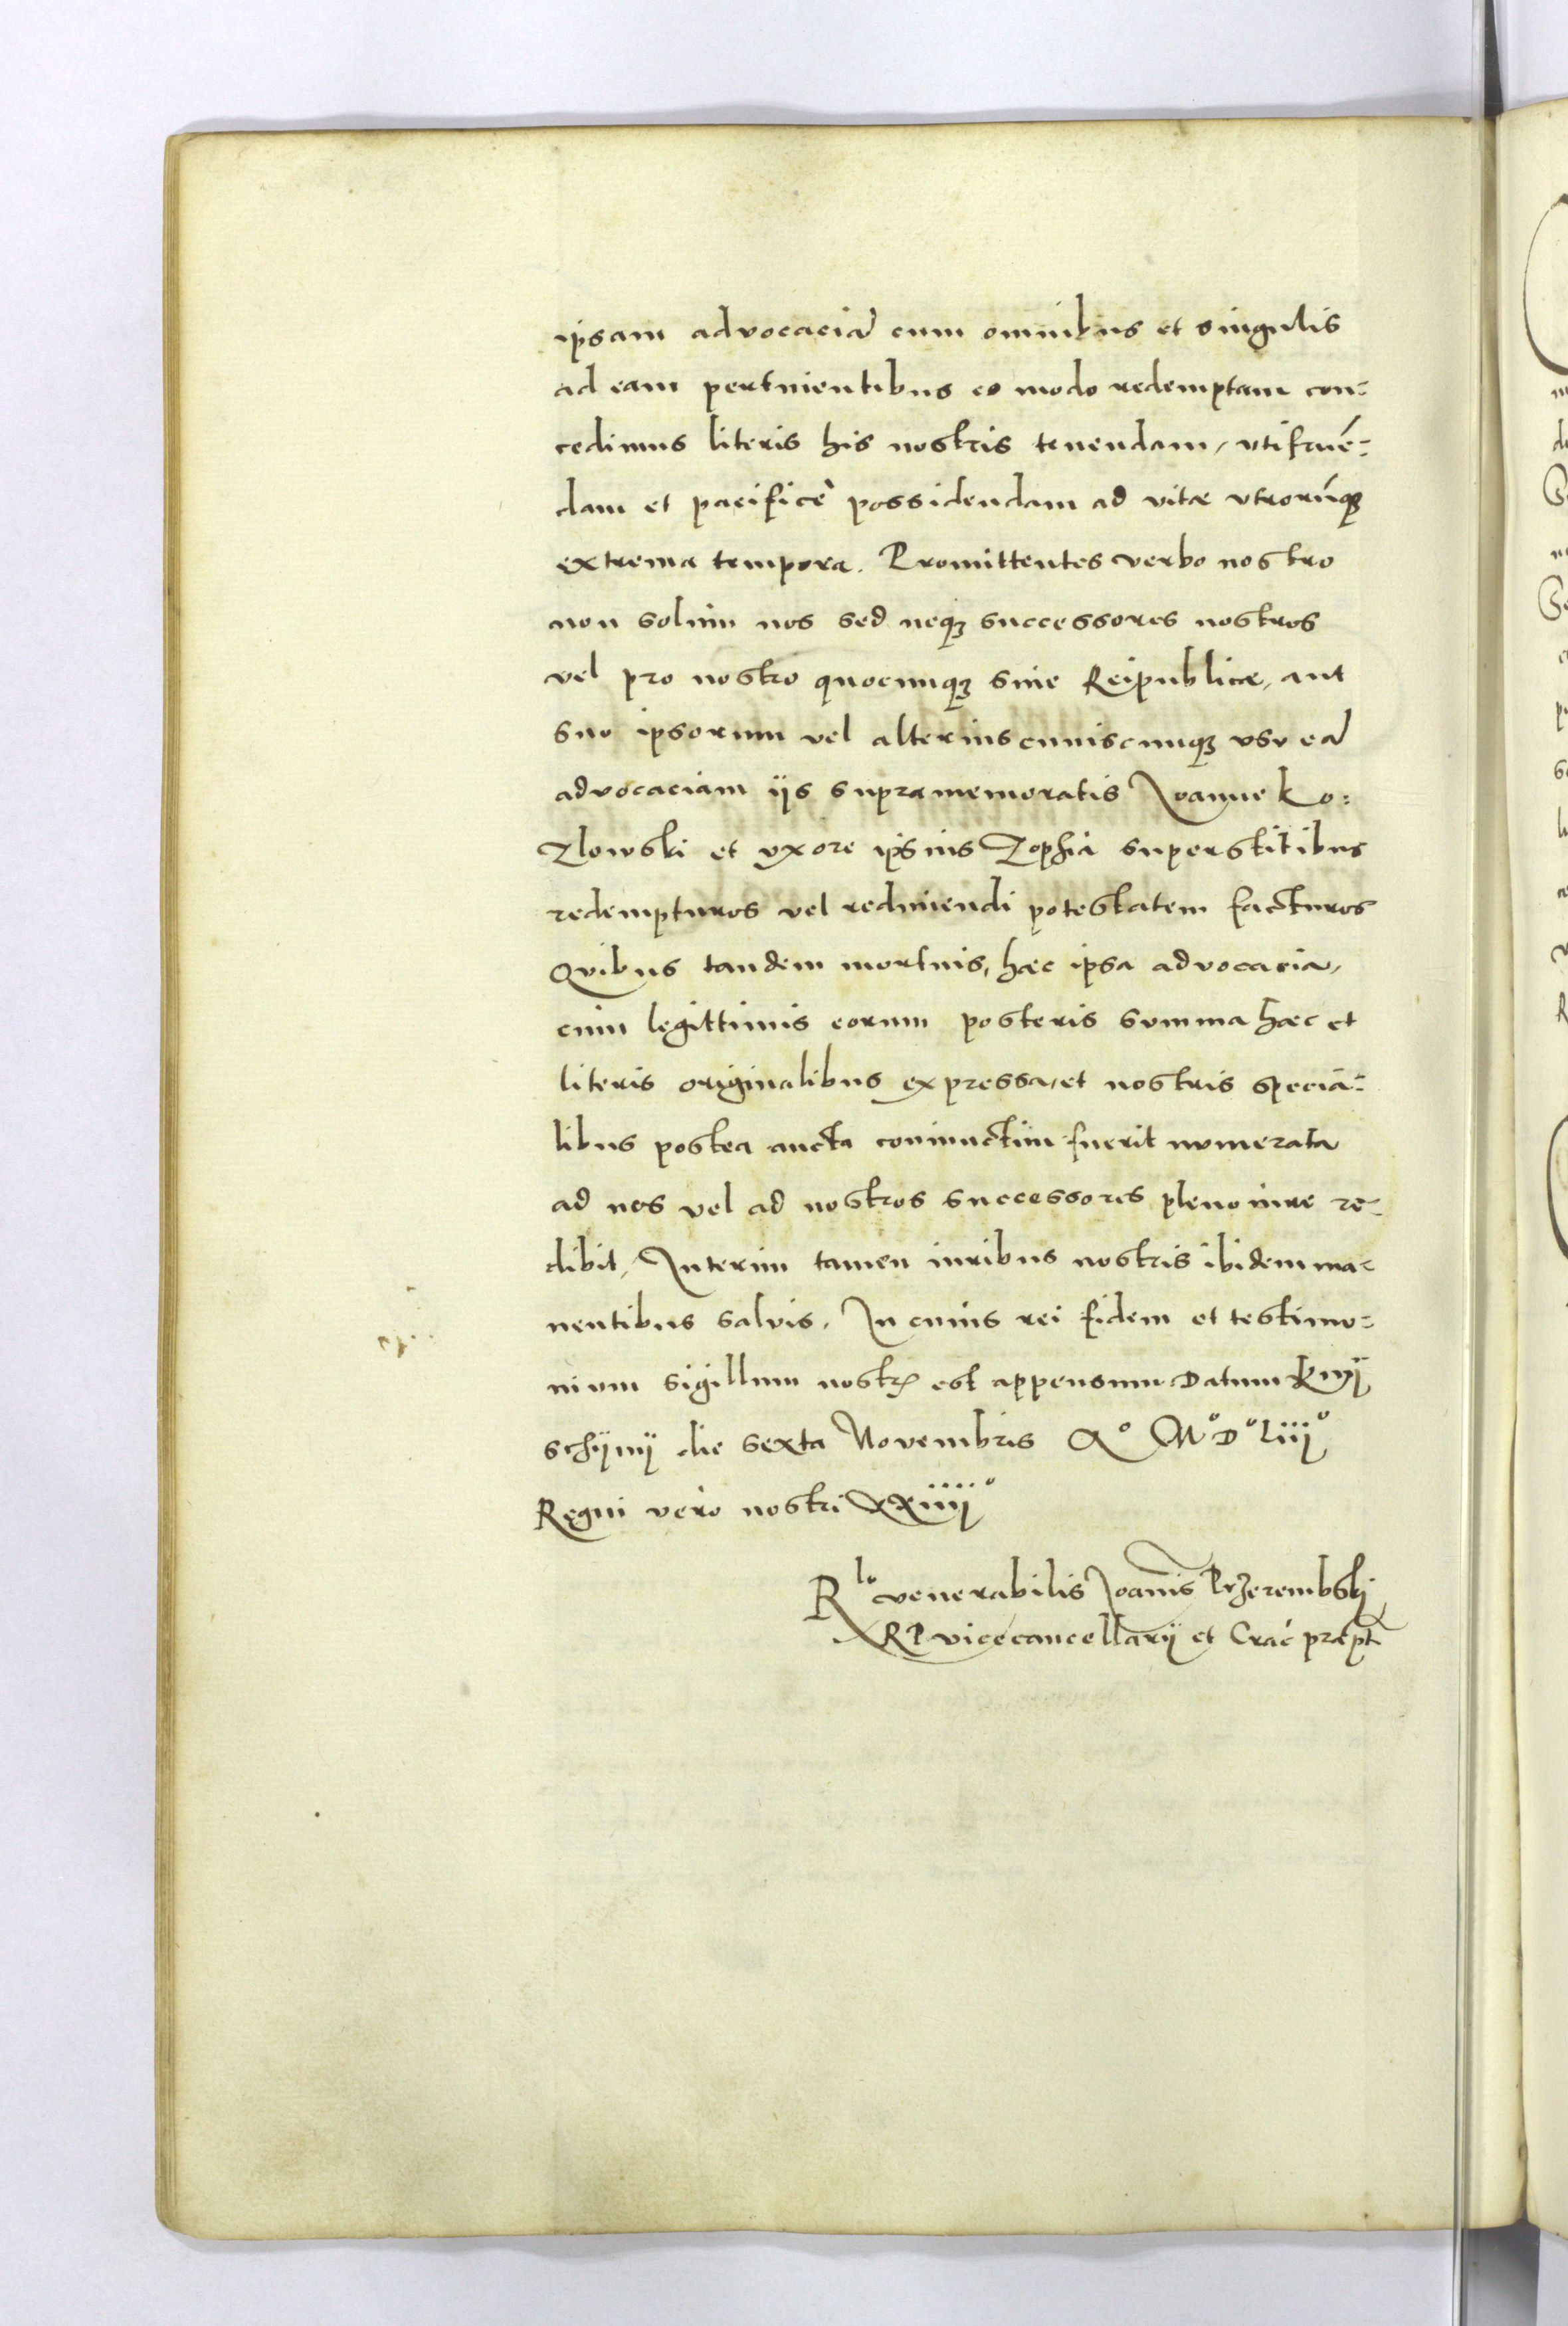 ipsam advocaciā cum omnibus et singulis
ad eam pertinentibus eo modo redemptam con=
cedimus literis his nostris tenendam, vtifruē=
dam et pacificè possidendam ad vitæ vtrorūqꝫ
extrema tempora. Promittentes verbo nostro
non solùm nos sed neqꝫ successores nostros
vel pro nostro quocunqꝫ siue Reipublicæ, aut
suo ipsorum vel alterius cuiuscunqꝫ vsu eā
advocaciam ijs supramemoratis Joanne Ko=
zlowski et vxore ipsius Zophia superstitibus
redempturos vel redimendi potestatem facturos
Quibus tandem mortuis, hæc ipsa advocacia,
cum legittimis eorum posteris summa hæc et
literis originalibus expressa, et nostris specia=
libus postea aucta coniunctim fuerit numerata
ad nos vel ad nostros successores pleno iure re=
dibit, Interim tamen iuribus nostris ibidem ma=
nentibus salvis. In cuius rei fidem et testimo=
nium sigillum nostrꝫ est appensum Datum Knÿ
schÿnÿ die sexta Novembris Aº Mº Dº Liiijº
Regni verò nostri xxiiiijº
Rlo venerabilis Joānis Przerembskj
R P vicecancellarij et Crać præpt